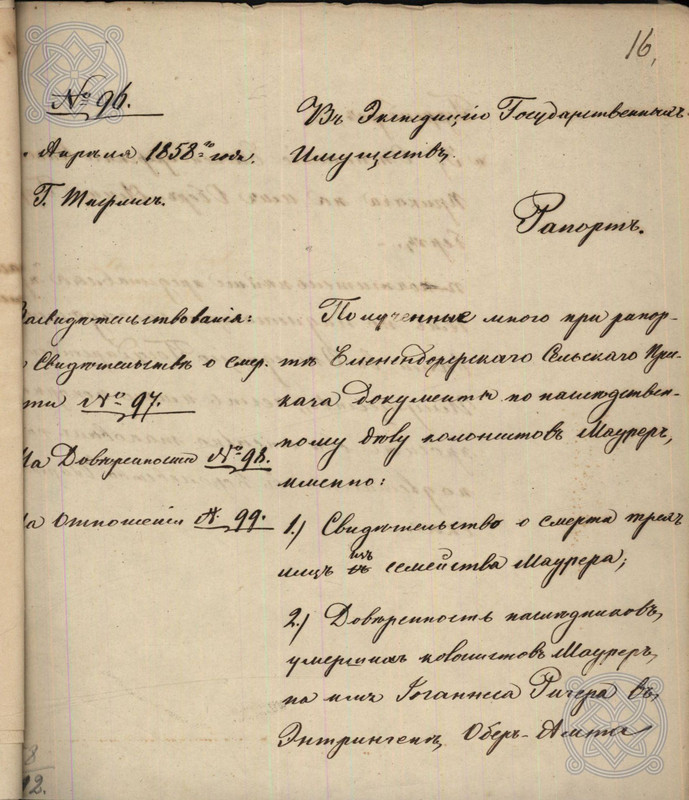 16,
№ 96.
Апрѣля 1858го года.
Г. Тифлисъ.
Въ Экспедицію Государственныхъ
Имуществъ,
Рапортъ.
Засвидѣтельствованія:
Свидѣтельствѣ о смер-
ти № 97.
На Довѣренности № 98.
На Отношеніи № 99.
Полученные мною при рапор-
тѣ Елененгдорфскаго Сельскаго При-
каза документы по наслѣдствен-
ному дѣлу колонистовъ Мауреръ,
именно:
1.) Свидѣтельство о смерти трехъ
лицъ изъ семейства Маурера;
2.) Довѣренность наслѣдниковъ,
умершихъ колонистовъ Мауреръ,
на имя Іоганнеса Ригера въ,
Энтрингенъ, Оберъ-Амта
8
12.